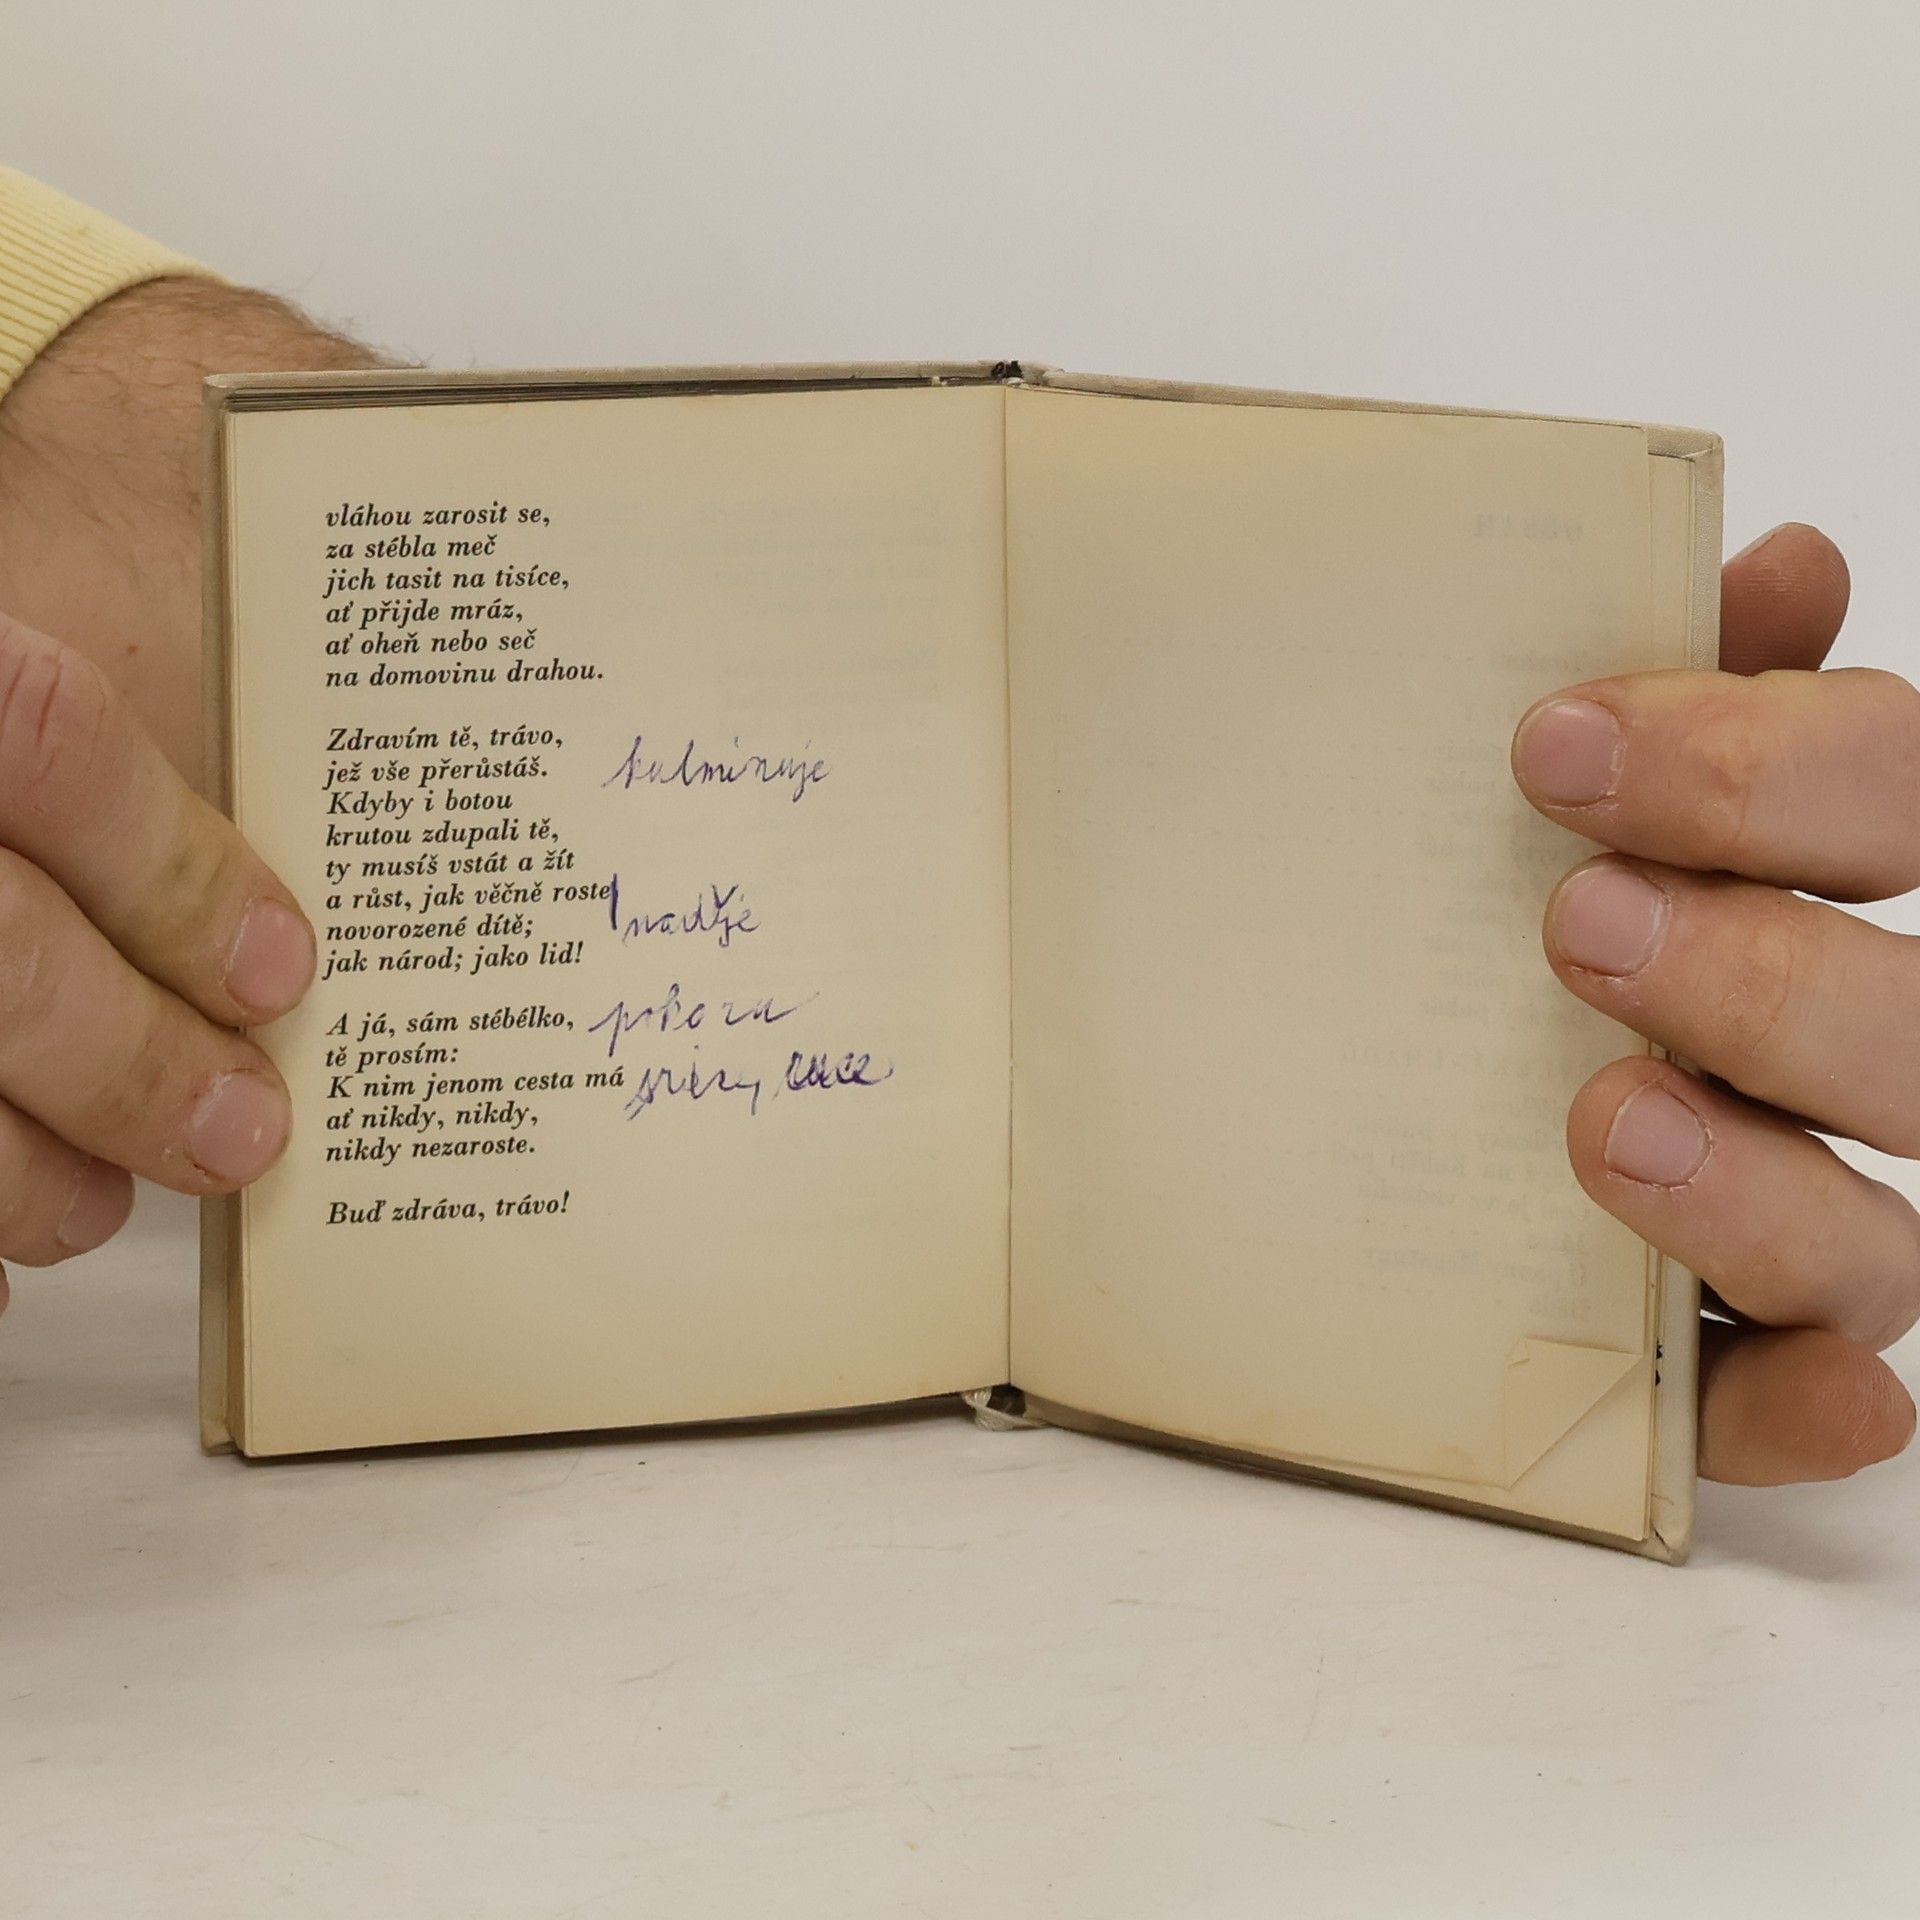 vláhou zarosit se,
za stébla meč
jich tasit na tisíce,
ať přijde mráz,
ať oheň nebo seč
na domovinu drahou.
Zdravím tě, trávo,
jež vše přerůstáš. kulminuje
Kdyby i botou
krutou zdupali tě,
ty musíš vstát a žít
a růst, jak věčně roste
novorozené dítě; naděje
jak národ; jako lid!
A já, sám stébélko, pokora
tě prosím:
K nim jenom cesta má
ať nikdy, nikdy,
nikdy nezaroste.
Buď zdráva, trávo!